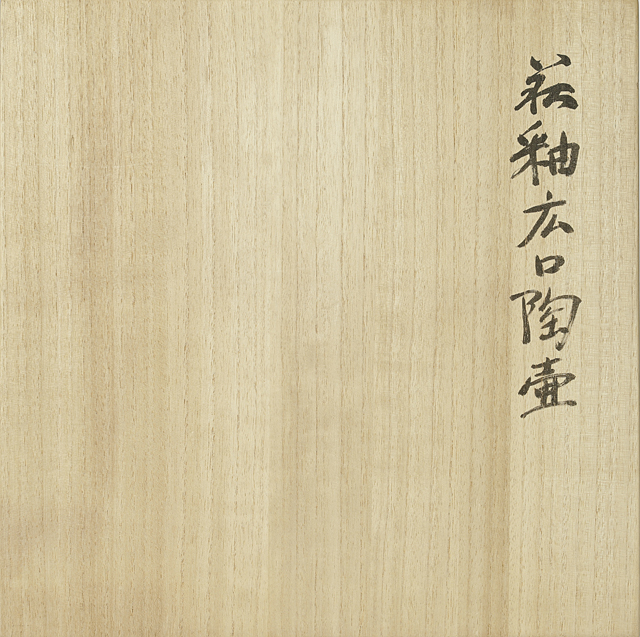 萩釉広口陶壷